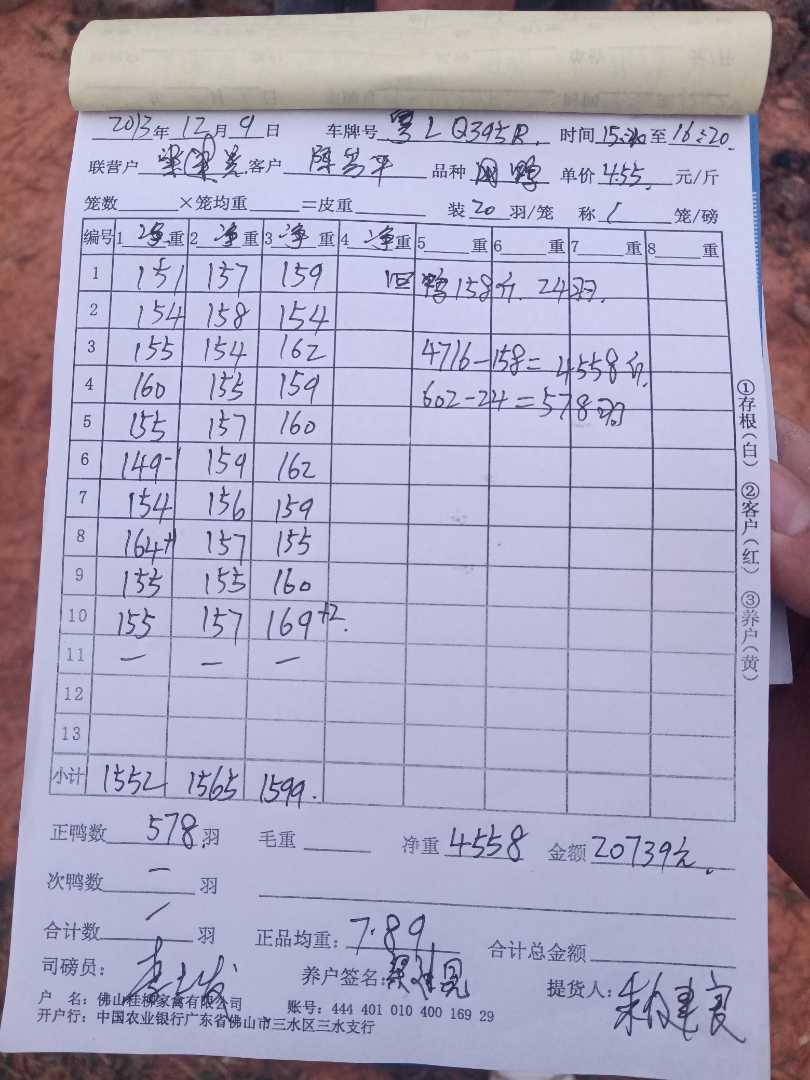 2013年 12月 9日 车牌号 粤L Q395R. 时间 15: 至 16:20.
联营户 客户 陈 平 品种 鸭 单价 4.55 元/斤
笼数 ×笼均重 =皮重 装 20 羽/笼 称 1 笼/磅
编号 1 净重 2 净重 3 净重 4 净重 5 重 6 重 7 重 8 重
1 151 157 159 回鸭158斤. 24羽.
2 154 158 154
3 155 154 162 4716-158=4558斤.
4 160 155 159 602-24=578羽
5 155 157 160
6 149-1 159 162
7 154 156 159
8 164+1 157 155
9 155 155 160
10 155 157 169+2.
11 — — —
12
13
小计 1552 1565 1599.
正鸭数 578 羽 毛重 净重 4558 金额 20739元.
次鸭数 — 羽
合计数 / 羽 正品均重: 7.89 合计总金额
司磅员: 养户签名: 提货人:
户 名: 佛山桂柳家禽有限公司 账号: 444 401 010 400 169 29
开户行: 中国农业银行广东省佛山市三水区三水支行
①存根(白) ②客户(红) ③养户(黄)